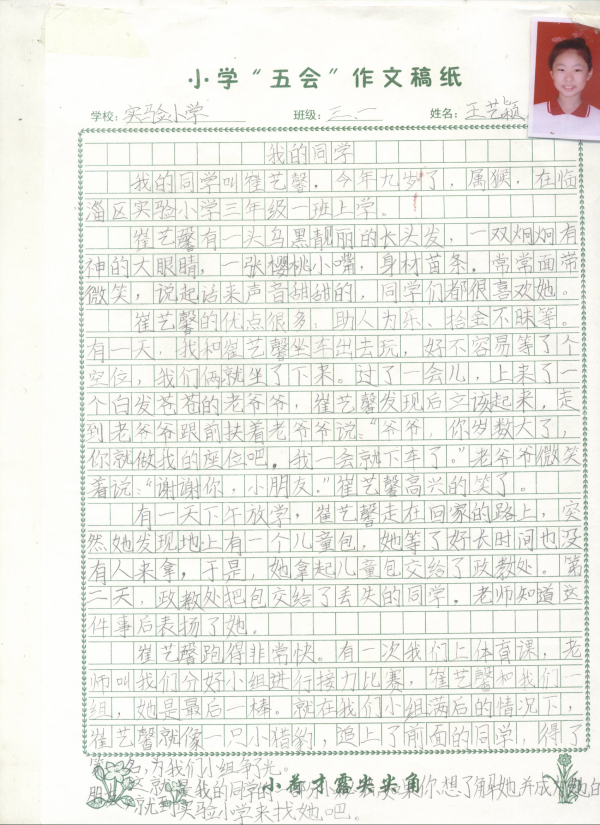 小学“五会”作文稿纸
学校：实验小学 班级：三.一 姓名：王艺颖
我的同学
我的同学叫崔艺馨，今年九岁了，属猴，在临
淄区实验小学三年级一班上学。
崔艺馨有一头乌黑靓丽的长头发，一双炯炯有
神的大眼睛，一张樱桃小嘴，身材苗条，常常面带
微笑，说起话来声音甜甜的，同学们都很喜欢她。
崔艺馨的优点很多，助人为乐、拾金不昧等。
有一天，我和崔艺馨坐车出去玩，好不容易等了个
空位，我们俩就坐了下来。过了一会儿，上来了一
个白发苍苍的老爷爷，崔艺馨发现后立该起来，走
到老爷爷跟前扶着老爷爷说：“爷爷，你岁数大了，
你就做我的座位吧，我一会就下车了。”老爷爷微笑
着说：“谢谢你，小朋友。”崔艺馨高兴的笑了。
有一天下午放学，崔艺馨走在回家的路上，突
然她发现地上有一个儿童包，她等了好长时间也没
有人来拿，于是，她拿起儿童包交给了政教处。第
二天，政教处把包交给了丢失的同学，老师知道这
件事后表扬了她。
崔艺馨跑得非常快。有一次我们上体育课，老
师叫我们分好小组进行接力比赛，崔艺馨和我们一
组，她是最后一棒。就在我们小组满后的情况下，
崔艺馨就像一只小猎豹，追上了前面的同学，得了
第一名，为我们小组争了光。
这就是我的同学的 你想了解她并成为她的
朋 就到实验小学来找她吧。
小荷才露尖尖角